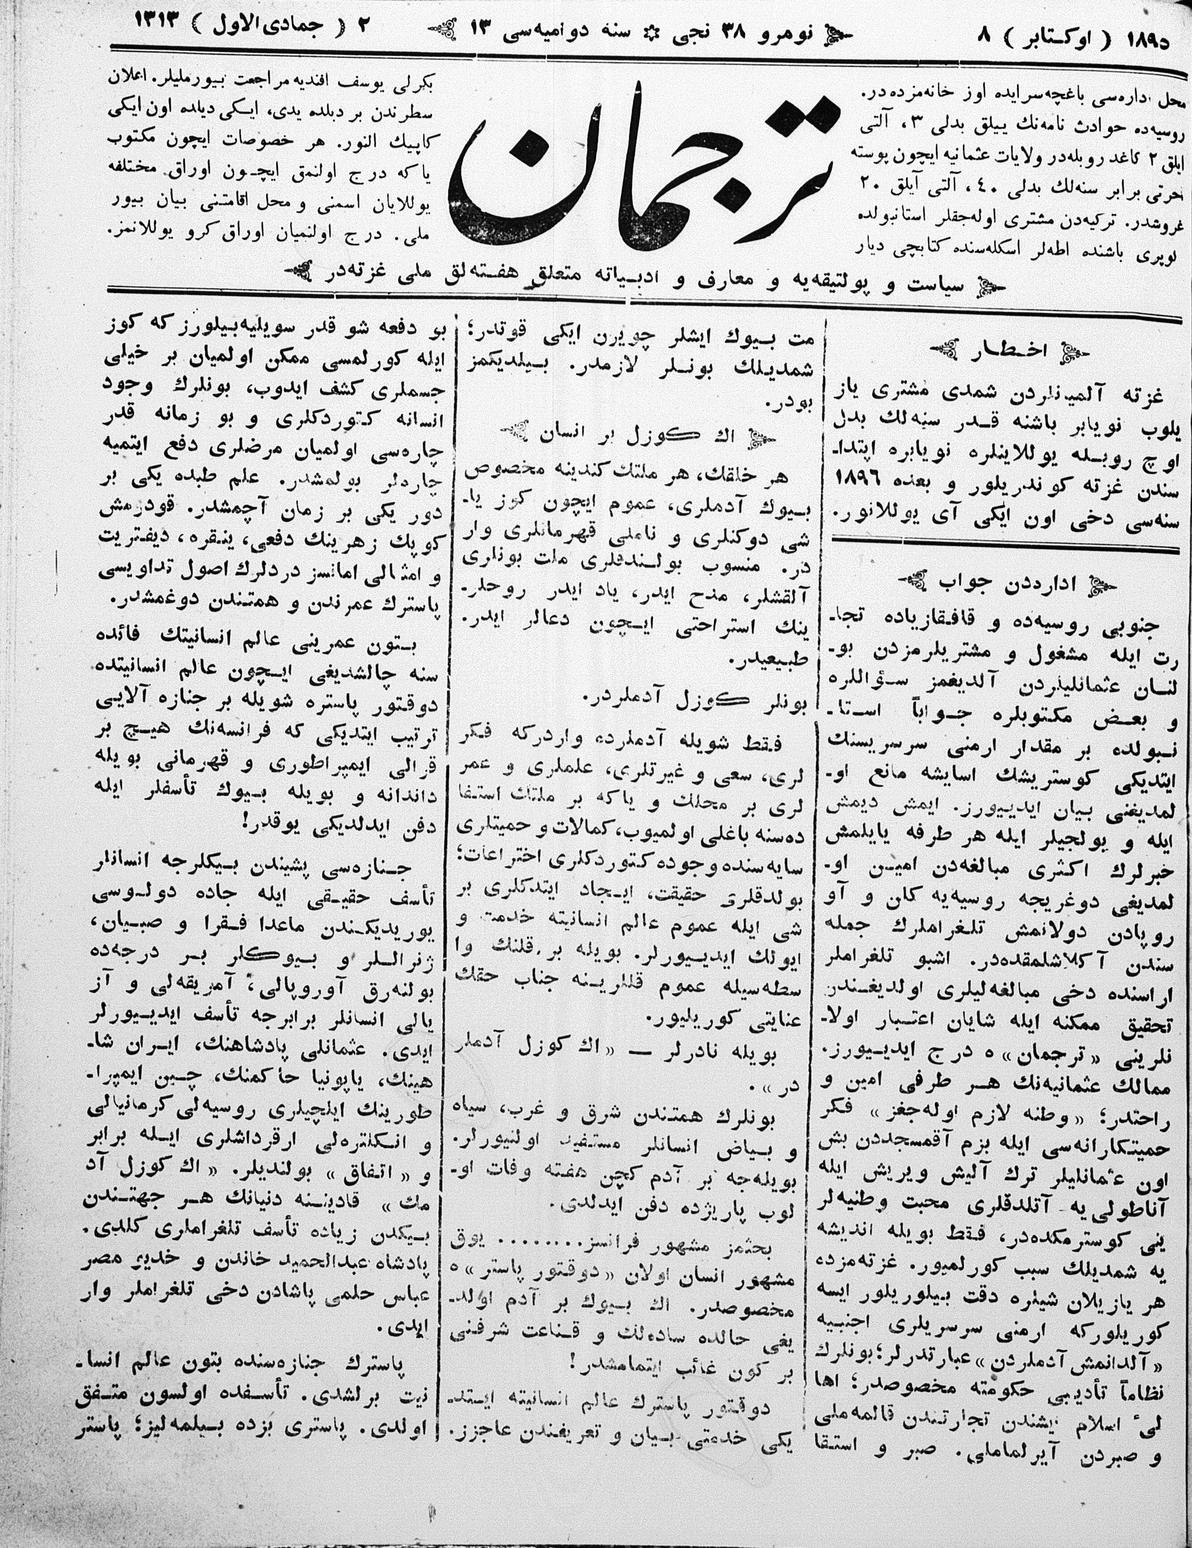 ١٨٩٥ ( اوكتابر ) ٨
نومرو ٣٨ نجی ✼ سنه دواميه‌سی ١٣
٢ ( جمادی الاول ) ١٣١٣
محل اداره‌سی باغچه‌سرايده اوز خانه‌مزده در.
روسيه‌ده حوادث نامه‌نك ييللق بدلی ٣، آلتی
ايلق ٢ كاغد روبله‌در ولايات عثمانيه ايچون پوسته
اجرتی برابر سنه‌لك بدلی ٤٠، آلتی آيلق ٢٠
غروشدر. تركيه‌دن مشتری اوله‌جقلر استانبولده
لوپری باشنده اطه‌لر اسكله‌سنده كتابچی ديار
ترجمان
بكرلی يوسف افنديه مراجعت بيورمليلر. اعلان
سطرندن بر ديلده يدی، ايكی ديلده اون ايكی
كاپيك النور. هر خصوصات ايچون مكتوب
ياكه درج اولنمق ايچون اوراق مختلفه
يوللايان اسمنی و محل اقامتنی بيان بيور
ملی. درج اولنميان اوراق كرو يوللانمز.
سياست و پولتيقه‌يه و معارف و ادبياته متعلق هفته‌لق ملی غزته‌در
اخطار
غزته آلميانلردن شمدی مشتری ياز
يلوب نويابر باشنه قدر سنه‌لك بدل
اوچ روبله يوللاينلره نويابره ابتدا۔
سندن غزته كوندريلور و بعده ١٨٩٦
سنه‌سی دخی اون ايكی آی يوللانور.
اداره‌دن جواب
جنوبی روسيه‌ده و قافقازياده تجا۔
رت ايله مشغول و مشتريلرمزدن بو۔
لنان عثمانليلردن آلديغمز سئواللره
و بعض مكتوبلره جواباً استا۔
نبولده بر مقدار ارمنی سرسريسنك
ايتديكی كوستريشك اسايشه مانع او۔
لمديغنی بيان ايدييورز. ايمش ديمش
ايله و يولجيلر ايله هر طرفه يايلمش
خبرلرك اكثری مبالغه‌دن امين او۔
لمديغی دوغريجه روسيه‌يه كان و آو
روپادن دولانمش تلغراملرك جمله
سندن آكلاشلمقده‌در. اشبو تلغراملر
اراسنده دخی مبالغه‌ليلری اولديغندن
تحقيق ممكنه ايله شايان اعتبار اولا۔
نلرينی «ترجمان» ه درج ايدييورز.
ممالك عثمانيه‌نك هر طرفی امين و
راحتدر؛ «وطنه لازم اوله‌جغز» فكر
حميتكارانه‌سی ايله بزم آقمسجددن بش
اون عثمانليلر ترك آليش ويريش ايله
آناطولی‌يه آتلدقلری محبت وطنيه‌لر
ينی كوسترمكده‌در، فقط بويله انديشه
يه شمديلك سبب كورلميور. غزته‌مزده
هر يازيلان شيئره دقت بيلوريلور ايسه
كوريلوركه ارمنی سرسريلری اجنبيه
«آلدانمش آدملردن» عبارتدرلر؛ بونلرك
نظاماً تأديبی حكومته مخصوصدر؛ اها
لیٔ اسلام ايشندن تجارتندن قالمه‌ملی
و صبردن آيرلماملی. صبر و استقا
مت بيوك ايشلر چويرن ايكی قوتدر؛
شمديلك بونلر لازمدر. بيلديكمز
بودر.
اك كوزل بر انسان
هر خلقك، هر ملتك كندينه مخصوص
بيوك آدملری، عموم ايچون كوز يا۔
شی دوكنلری و ناملی قهرمانلری وار
در. منسوب بولندقلری ملت بونلری
آلقشلر، مدح ايدر، ياد ايدر روحلر۔
ينك استراحتی ايچون دعالر ايدر.
طبيعيدر.
بونلر كوزل آدملردر.
فقط شويله آدملرده واردركه فكر
لری، سعی و غيرتلری، علملری و عمر
لری بر محلك و ياكه بر ملتك استفا
ده‌سنه باغلی اولميوب، كمالات و حميتلری
سايه‌سنده وجوده كتوردكلری اختراعات؛
بولدقلری حقيقت، ايجاد ايتدكلری بر
شی ايله عموم عالم انسانيته خدمت و
ايولك ايدييورلر. بويله بر قلنك وا
سطه‌سيله عموم قللرينه جناب حقك
عنايتی كوريليور.
بويله نادرلر — «اك كوزل آدملر
در».
بونلرك همتندن شرق و غرب، سياه
و بياض انسانلر مستفيد اولنيورلر.
بويله‌جه بر آدم كچن هفته وفات او۔
لوب پاريژده دفن ايدلدی.
بحثمز مشهور فرانسز........ يوق
مشهور انسان اولان «دوقتور پاستر» ه
مخصوصدر. اك بيوك بر آدم اولد۔
يغی حالده ساده‌لك و قناعت شرفنی
بر كون غائب ايتمامشدر!
دوقتور پاسترك عالم انسانيته ايتد۔
يكی خدمتی بيان و تعريفندن عاجزز.
بو دفعه شو قدر سويليه‌بيلورزكه كوز
ايله كورلمسی ممكن اولميان بر خيلی
جسملری كشف ايدوب، بونلرك وجود
انسانه كتوردكلری و بو زمانه قدر
چاره‌سی اولميان مرضلری دفع ايتميه
چاره‌لر بولمشدر. علم طبده يكی بر
دور يكی بر زمان آچمشدر. قودرمش
كوپك زهرينك دفعی، ينقره، ديفتريت
و امثالی امانسز دردلرك اصول تداويسی
پاسترك عمرندن و همتندن دوغمشدر.
بتون عمرينی عالم انسانيتك فائده
سنه چالشديغی ايچون عالم انسانيتده
دوقتور پاستره شويله بر جنازه آلايی
ترتيب ايتديكی كه فرانسه‌نك هيچ بر
قرالی ايمپراطوری و قهرمانی بويله
داندانه و بويله بيوك تأسفلر ايله
دفن ايدلديكی يوقدر!
جنازه‌سی پشيندن بيكلرجه انسانلر
تأسف حقيقی ايله جاده دولوسی
يوريديكندن ماعدا فقرا و صبيان،
ژنراللر و بيوكلر بر درجه‌ده
بولنه‌رق آوروپالی، آمريقه‌لی و آز
يالی انسانلر برابرجه تأسف ايدييورلر
ايدی. عثمانلی پادشاهنك، ايران شا۔
هينك، ياپونيا حاكمنك، چين ايمپرا۔
طورينك ايلچيلری روسيه‌لی كرمانيالی
و انكلتره‌لی ارقرداشلری ايله برابر
و «اتفاق» بولنديلر. «اك كوزل آد
مك» قادينه دنيانك هر جهتندن
بيكدن زياده تأسف تلغراملری كلدی.
پادشاه عبدالحميد خاندن و خديو مصر
عباس حلمی پاشادن دخی تلغراملر وار
ايدی.
پاسترك جنازه‌سنده بتون عالم انسا۔
نيت برلشدی. تأسفده اولسون متفق
اولدی. پاستری بزده بيلمه‌ليز؛ پاستر